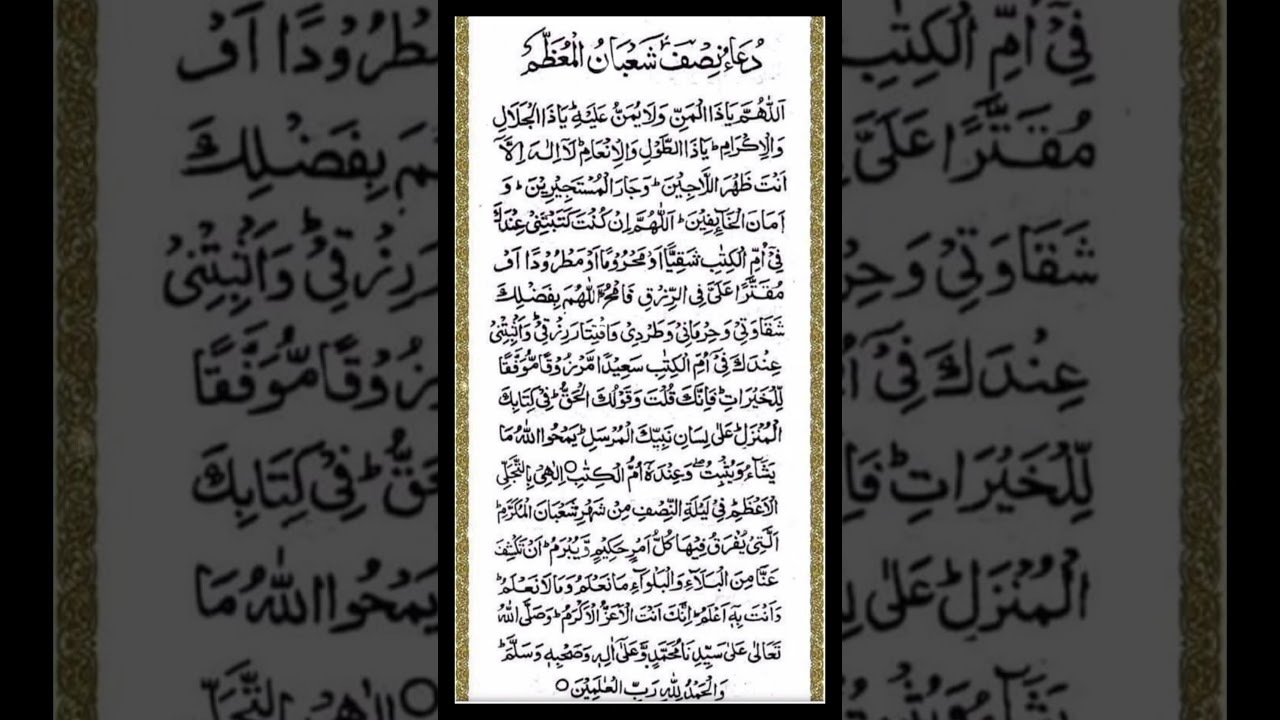 دُعَاءُ نِصْفَ شَعْبَانُ الْمُعَظَّمْ
اَللّٰهُمَّ يَاذَا الْمَنِّ وَلَا يُمَنُّ عَلَيْهِ ؕ يَاذَا الْجَلَالِ
وَالْاِكْرَامِ ؕ يَاذَا الطَّوْلِ وَالْاِنْعَامِ ؕ لَآ اِلٰهَ اِلَّا
اَنْتَ ظَهْرَ اللَّاجِيْنَ ؕ وَجَارَ الْمُسْتَجِيْرِيْنَ ؕ وَ
اَمَانَ الْخَآئِفِيْنَ ؕ اَللّٰهُمَّ اِنْ كُنْتَ كَتَبْتَنِيْ عِنْدَكَ
فِيْٓ اُمِّ الْكِتٰبِ شَقِيًّا اَوْ مَحْرُوْمًا اَوْ مَطْرُوْدًا اَوْ
مُقَتَّرًا عَلَيَّ فِي الرِّزْقِ فَامْحُ اللّٰهُمَّ بِفَضْلِكَ
شَقَاوَتِيْ وَحِرْمَانِيْ وَطَرْدِيْ وَاقْتِتَارَ رِزْقِيْ ؕ وَاَثْبِتْنِيْ
عِنْدَكَ فِيْٓ اُمِّ الْكِتٰبِ سَعِيْدًا مَّرْزُوْقًا مُّوَفَّقًا
لِّلْخَيْرَاتِ ؕ فَاِنَّكَ قُلْتَ وَقَوْلُكَ الْحَقُّ ؕ فِيْ كِتَابِكَ
الْمُنْزَلِ ؕ عَلٰى لِسَانِ نَبِيِّكَ الْمُرْسَلِ ؕ يَمْحُوا اللّٰهُ مَا
يَشَآءُ وَيُثْبِتُ ۖ وَعِنْدَهٗٓ اُمُّ الْكِتٰبِ ○ اِلٰهِيْ بِالتَّجَلِّي
الْاَعْظَمِ ؕ فِيْ لَيْلَةِ النِّصْفِ مِنْ شَهْرِ شَعْبَانَ الْمُكَرَّمِ ؕ
الَّتِيْ يُفْرَقُ فِيْهَا كُلُّ اَمْرٍ حَكِيْمٍ وَّيُبْرَمُ ؕ اَنْ تَكْشِفَ
عَنَّا مِنَ الْبَلَآءِ وَالْبَلْوَآءِ مَا نَعْلَمُ وَمَا لَا نَعْلَمُ ؕ
وَاَنْتَ بِهٖٓ اَعْلَمُ ؕ اِنَّكَ اَنْتَ الْاَعَزُّ الْاَكْرَمُ ؕ وَصَلَّى اللّٰهُ
تَعَالٰى عَلٰى سَيِّدِنَا مُحَمَّدٍ وَّعَلٰٓى اٰلِهٖ وَصَحْبِهٖ وَسَلَّمَ ؕ
وَالْحَمْدُ لِلّٰهِ رَبِّ الْعٰلَمِيْنَ ○